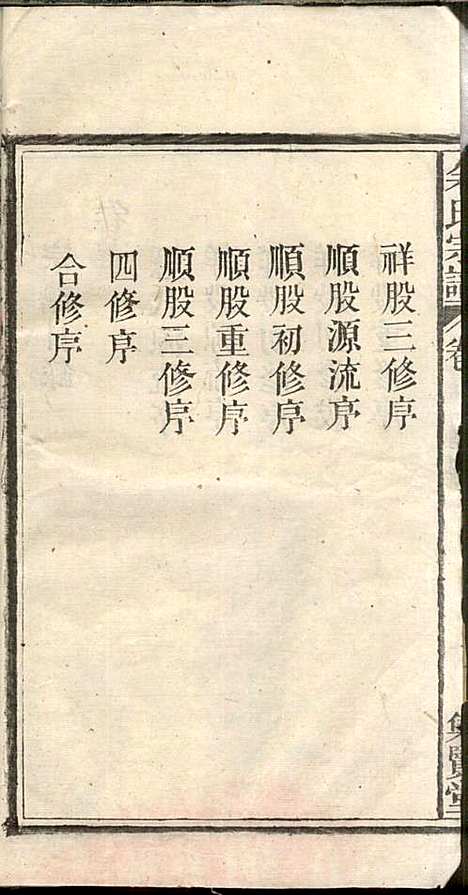 祥股三修序
順股源流序
順股初修序
順股重修序
順股三修序
四修序
合修序
氏宗譜 卷
集賢堂